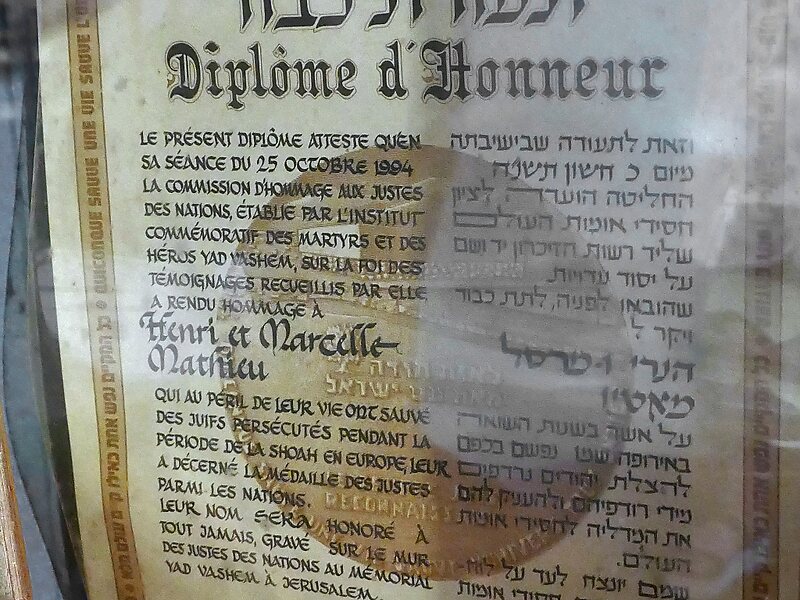 תעודת כבוד
Diplôme d'Honneur
LE PRÉSENT DIPLÔME ATTESTE QU'EN
SA SÉANCE DU 25 OCTOBRE 1994
LA COMMISSION D'HOMMAGE AUX JUSTES
DES NATIONS, ÉTABLIE PAR L'INSTITUT
COMMÉMORATIF DES MARTYRS ET DES
HÉROS YAD VASHEM, SUR LA FOI DES
TÉMOIGNAGES RECUEILLIS PAR ELLE
A RENDU HOMMAGE À
Henri et Marcelle
Mathieu
QUI AU PÉRIL DE LEUR VIE ONT SAUVÉ
DES JUIFS PERSÉCUTÉS PENDANT LA
PÉRIODE DE LA SHOAH EN EUROPE, LEUR
A DÉCERNÉ LA MÉDAILLE DES JUSTES
PARMI LES NATIONS.
LEUR NOM SERA HONORÉ À
TOUT JAMAIS, GRAVÉ SUR LE MUR
DES JUSTES DES NATIONS AU MÉMORIAL
YAD VASHEM À JÉRUSALEM.
וזאת לתעודה שבישיבתה
מיום כ חשון תשנ"ה
החליטה הועדה לציון
חסידי אומות העולם
שליד רשות הזיכרון יד ושם
על יסוד עדויות
שהובאו לפניה, לתת כבוד
ויקר ל
הנרי ומרסל
מאטיו
על אשר בשנות השואה
באירופה שמו נפשם בכפם
להצלת יהודים נרדפים
מידי רודפיהם ולהעניק להם
את המדליה לחסידי אומות
העולם.
שמם יונצח לעד על לוח-
חסידי אומות
QUICONQUE SAUVE UNE VIE SAUVE L'
כל המקיים נפש אחת כאילו קיים עולם מלא